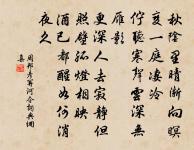 秋陰時晴漸向暝
變一庭淒冷
佇聽寒聲雲深無
雁影
更深人去寂靜但
照壁孤燈相映
酒已都醒如何消
夜永
周邦彥關河令詞典網
集